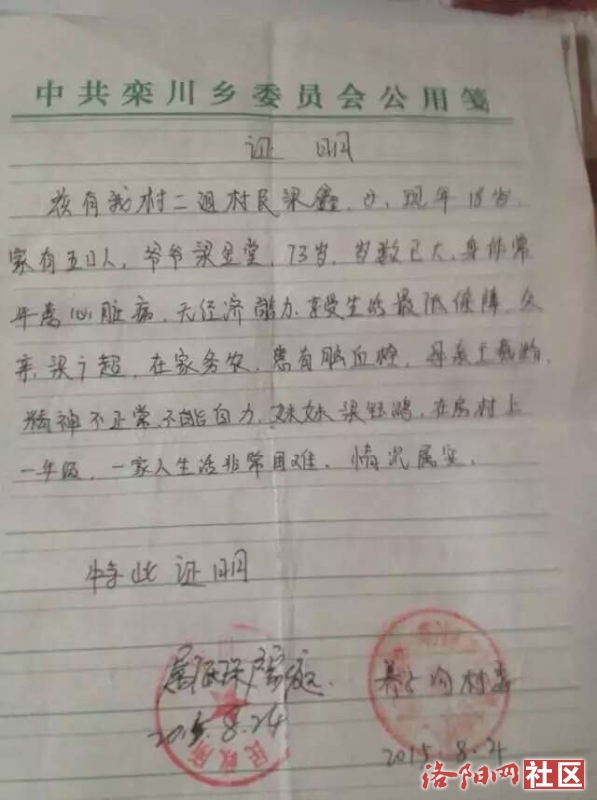 中共栾川乡委员会公用笺
证 明
兹有我村二组村民梁鑫，女，现年18岁，
家有五口人，爷爷梁金堂，73岁，岁数已大，身体常
年患心脏病，无经济能力，享受生活最低保障，父
亲梁广超，在家务农，患有脑血栓，母亲王
精神不正常，不能自力，妹妹梁钰鸿，在房村上
一年级，一家人生活非常困难，情况属实，
特此证明
属低保户家庭 养子沟村委
2015.8.24 2015.8.24
民政所
洛阳网社区